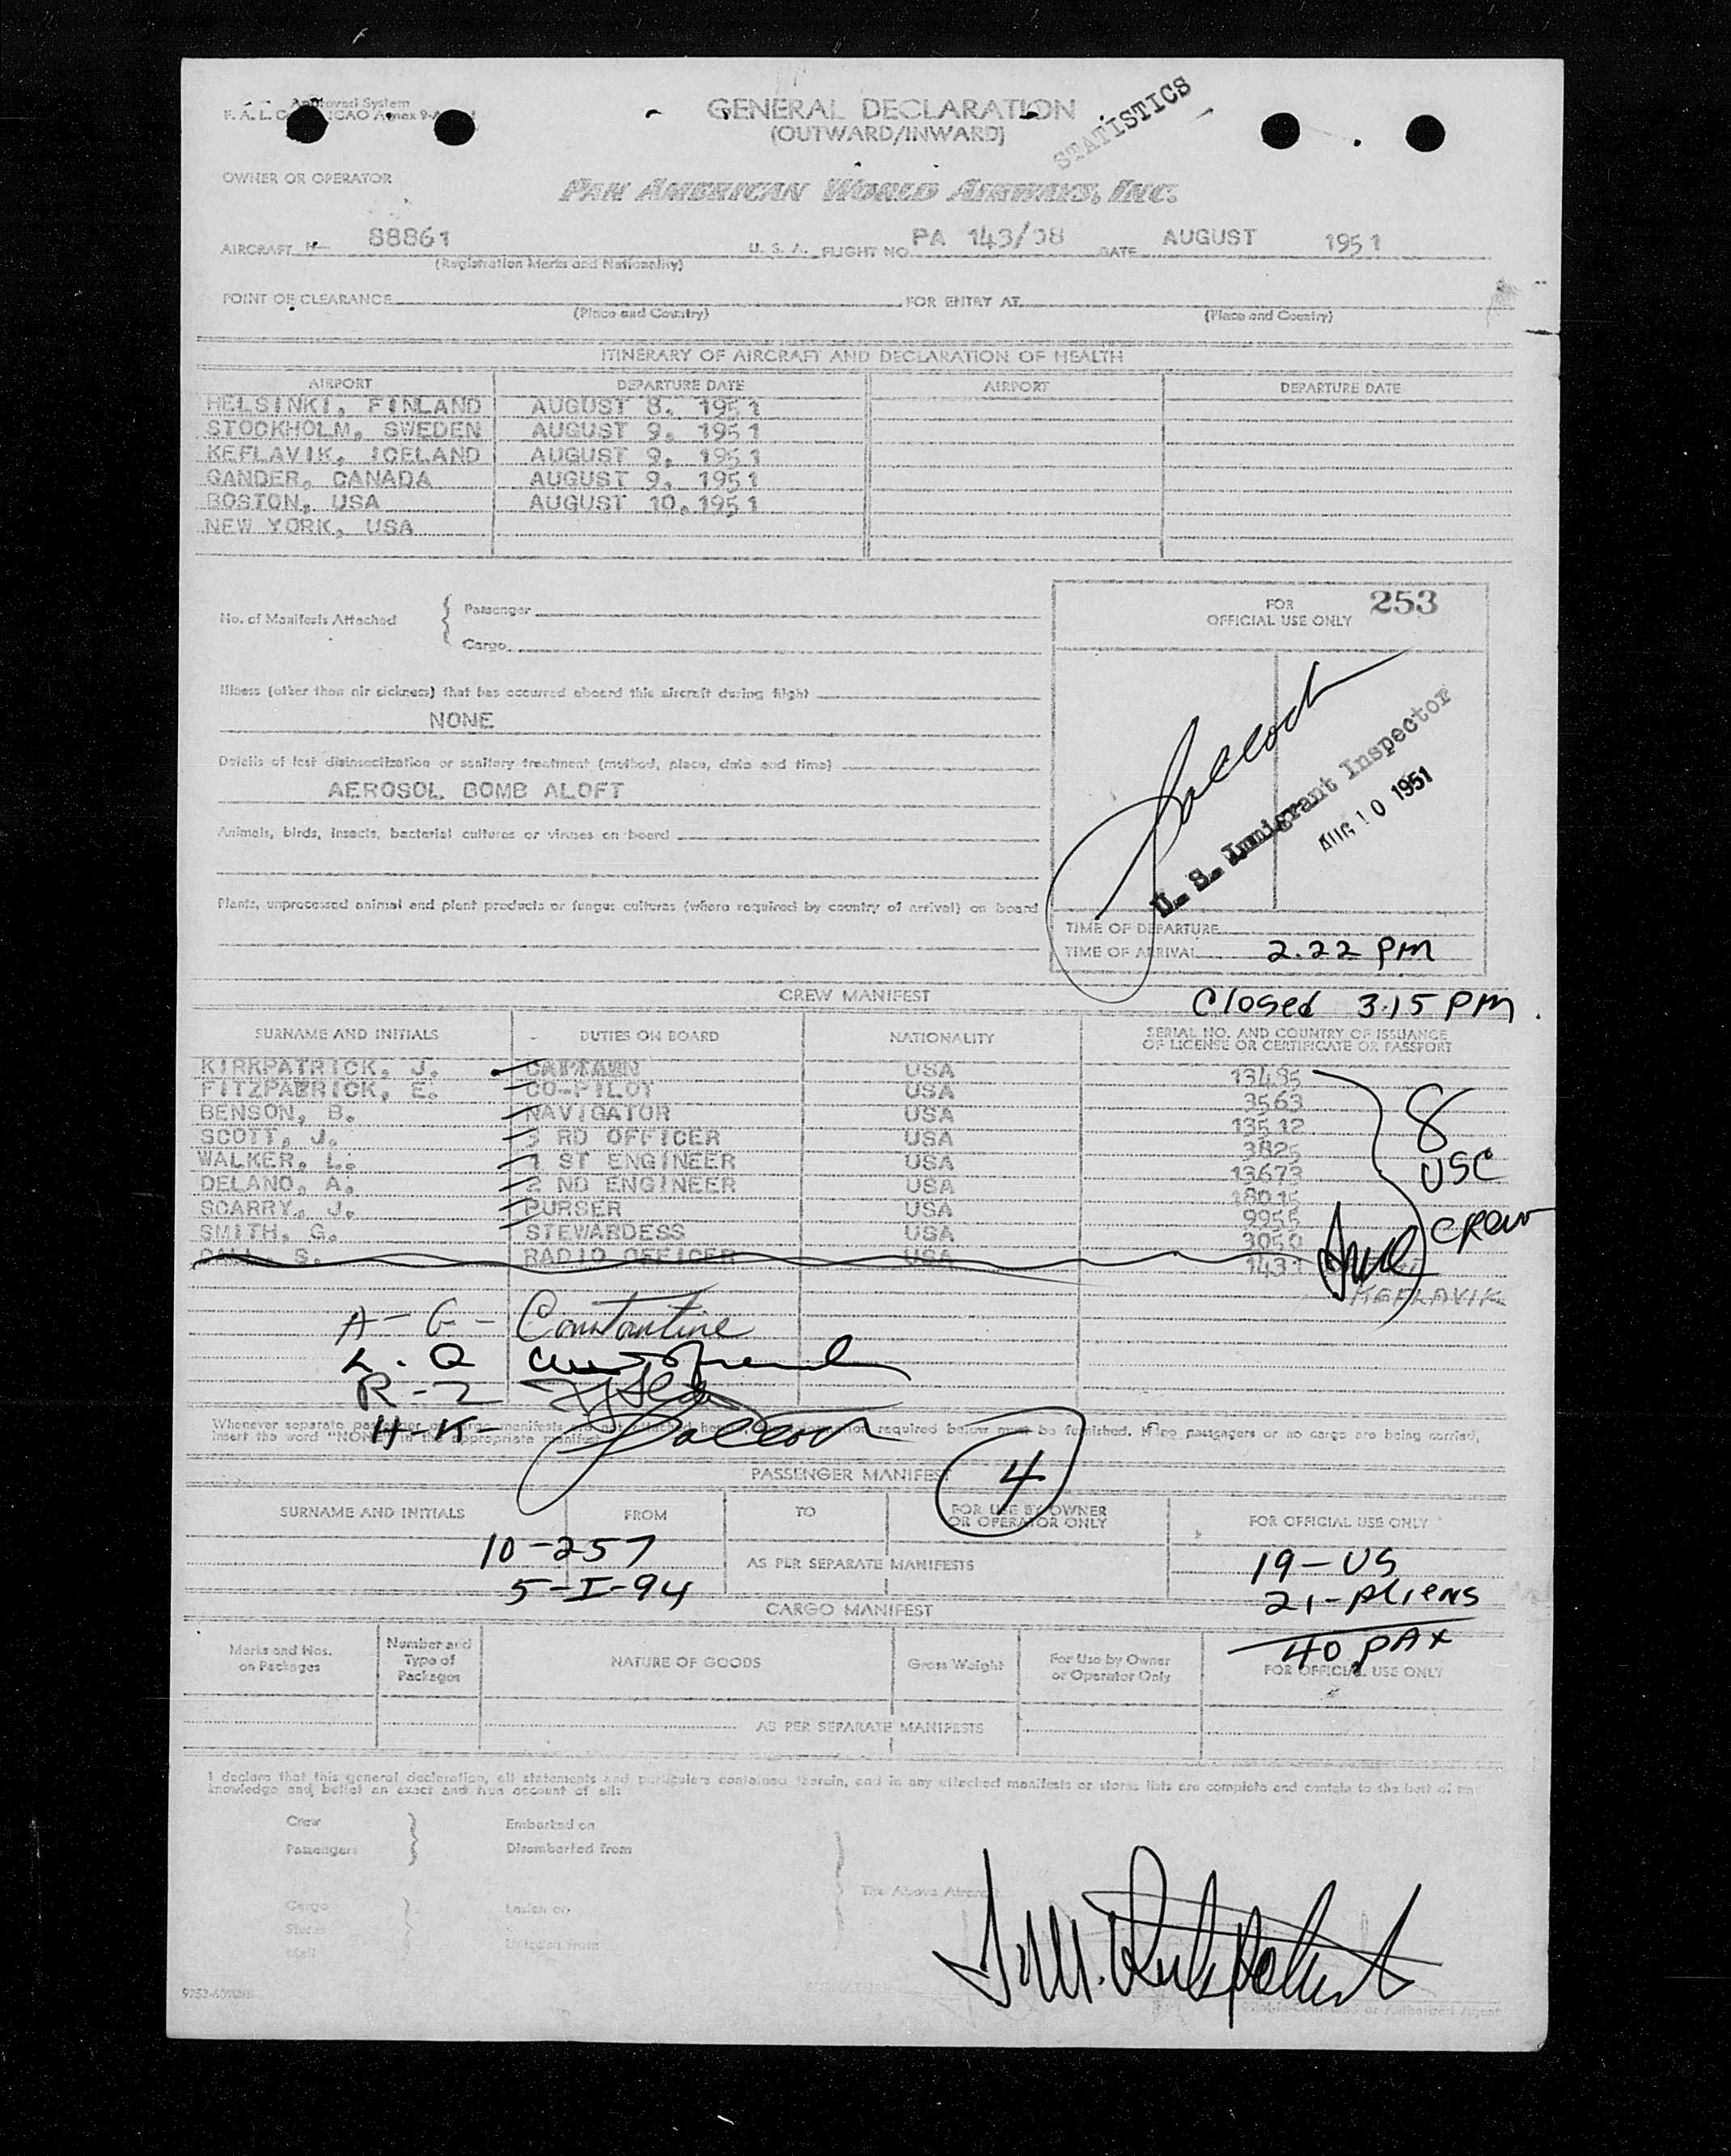 Approved System
GENERAL DECLARATION
(OUTWARD/INWARD)
STATISTICS
OWNER OR OPERATOR
PAN AMERICAN WORLD AIRWAYS, INC.
AIRCRAFT N- 88861 U. S. A. FLIGHT NO. PA 143/08 DATE AUGUST 1951
(Registration Marks and Nationality)
POINT OF CLEARANCE FOR ENTRY AT
(Place and Country) (Place and Country)
ITINERARY OF AIRCRAFT AND DECLARATION OF HEALTH
AIRPORT DEPARTURE DATE AIRPORT DEPARTURE DATE
HELSINKI, FINLAND AUGUST 8, 1951
STOCKHOLM, SWEDEN AUGUST 9, 1951
KEFLAVIK, ICELAND AUGUST 9, 1951
GANDER, CANADA AUGUST 9, 1951
BOSTON, USA AUGUST 10, 1951
NEW YORK, USA
No. of Manifests Attached { Passenger
Cargo
FOR OFFICIAL USE ONLY 253
Illness (other than air sickness) that has occurred aboard this aircraft during flight
NONE
Details of last disinsectization or sanitary treatment (method, place, date and time)
AEROSOL BOMB ALOFT
U. S. Immigrant Inspector
AUG 10 1951
Animals, birds, insects, bacterial cultures or viruses on board
Plants, unprocessed animal and plant products or fungus cultures (where required by country of arrival) on board
TIME OF DEPARTURE
TIME OF ARRIVAL 2.22 PM
CREW MANIFEST
Closed 3.15 PM.
SURNAME AND INITIALS DUTIES ON BOARD NATIONALITY SERIAL NO. AND COUNTRY OF ISSUANCE
OF LICENSE OR CERTIFICATE OR PASSPORT
KIRKPATRICK, J. CAPTAIN USA 13485
FITZPATRICK, E. CO-PILOT USA 3563
BENSON, B. NAVIGATOR USA 13512
SCOTT, J. 3 RD OFFICER USA 3825
WALKER, L. 1 ST ENGINEER USA 13673
DELANO, A. 2 ND ENGINEER USA
SCARRY, J. PURSER USA 9955
SMITH, G. STEWARDESS USA 3050
S. RADIO OFFICER USA
8
USC
CREW
KEFLAVIK
A-G- Constantine
R-2
H-K-
Whenever separate passenger or cargo manifests are not attached hereto, information required below must be furnished. If no passengers or no cargo are being carried,
insert the word "NONE" in the appropriate manifest.
4
PASSENGER MANIFEST
SURNAME AND INITIALS FROM TO FOR USE BY OWNER OR OPERATOR ONLY FOR OFFICIAL USE ONLY
10-257
AS PER SEPARATE MANIFESTS
19-US
5-I-94
21-Aliens
40 PAX
CARGO MANIFEST
Marks and Nos. on Packages Number and Type of Packages NATURE OF GOODS Gross Weight For Use by Owner or Operator Only FOR OFFICIAL USE ONLY
AS PER SEPARATE MANIFESTS
I declare that this general declaration, all statements and particulars contained therein, and in any attached manifests or stores lists are complete and contain to the best of my
knowledge and belief an exact and true account of all:
Crew Embarked on
Passengers Disembarked from
The Above Aircraft
Cargo Laden on
Stores
Mail Unladen from